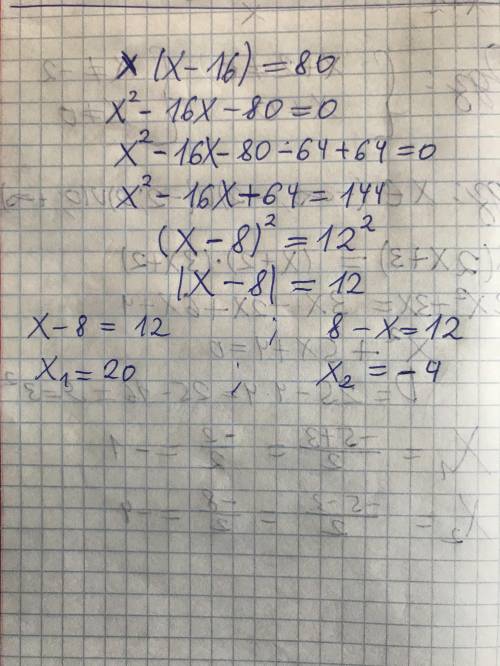 x (x - 16) = 80
x² - 16x - 80 = 0
x² - 16x - 80 - 64 + 64 = 0
x² - 16x + 64 = 144
(x - 8)² = 12²
|x - 8| = 12
x - 8 = 12 ; 8 - x = 12
x₁ = 20 ; x₂ = - 4